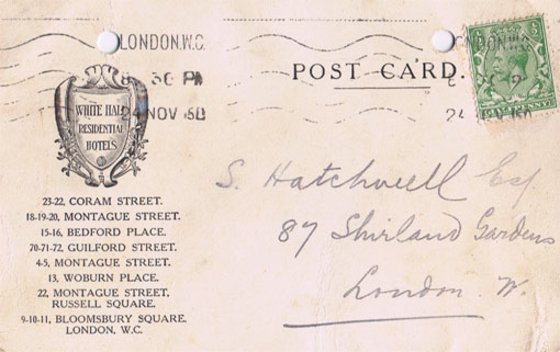 LONDON.W.C.
8 30 PM
24 NOV 15B
LONDON.W.C.
24
POST CARD.
HALF PENNY
WHITE HALL
RESIDENTIAL
HOTELS
23-22, CORAM STREET.
18-19-20, MONTAGUE STREET.
15-16, BEDFORD PLACE.
70-71-72, GUILFORD STREET.
4-5, MONTAGUE STREET.
13, WOBURN PLACE.
22, MONTAGUE STREET.
RUSSELL SQUARE.
9-10-11, BLOOMSBURY SQUARE.
LONDON, W.C.
S. Hatchwell Esq
87 Shirland Gardens
London. W.